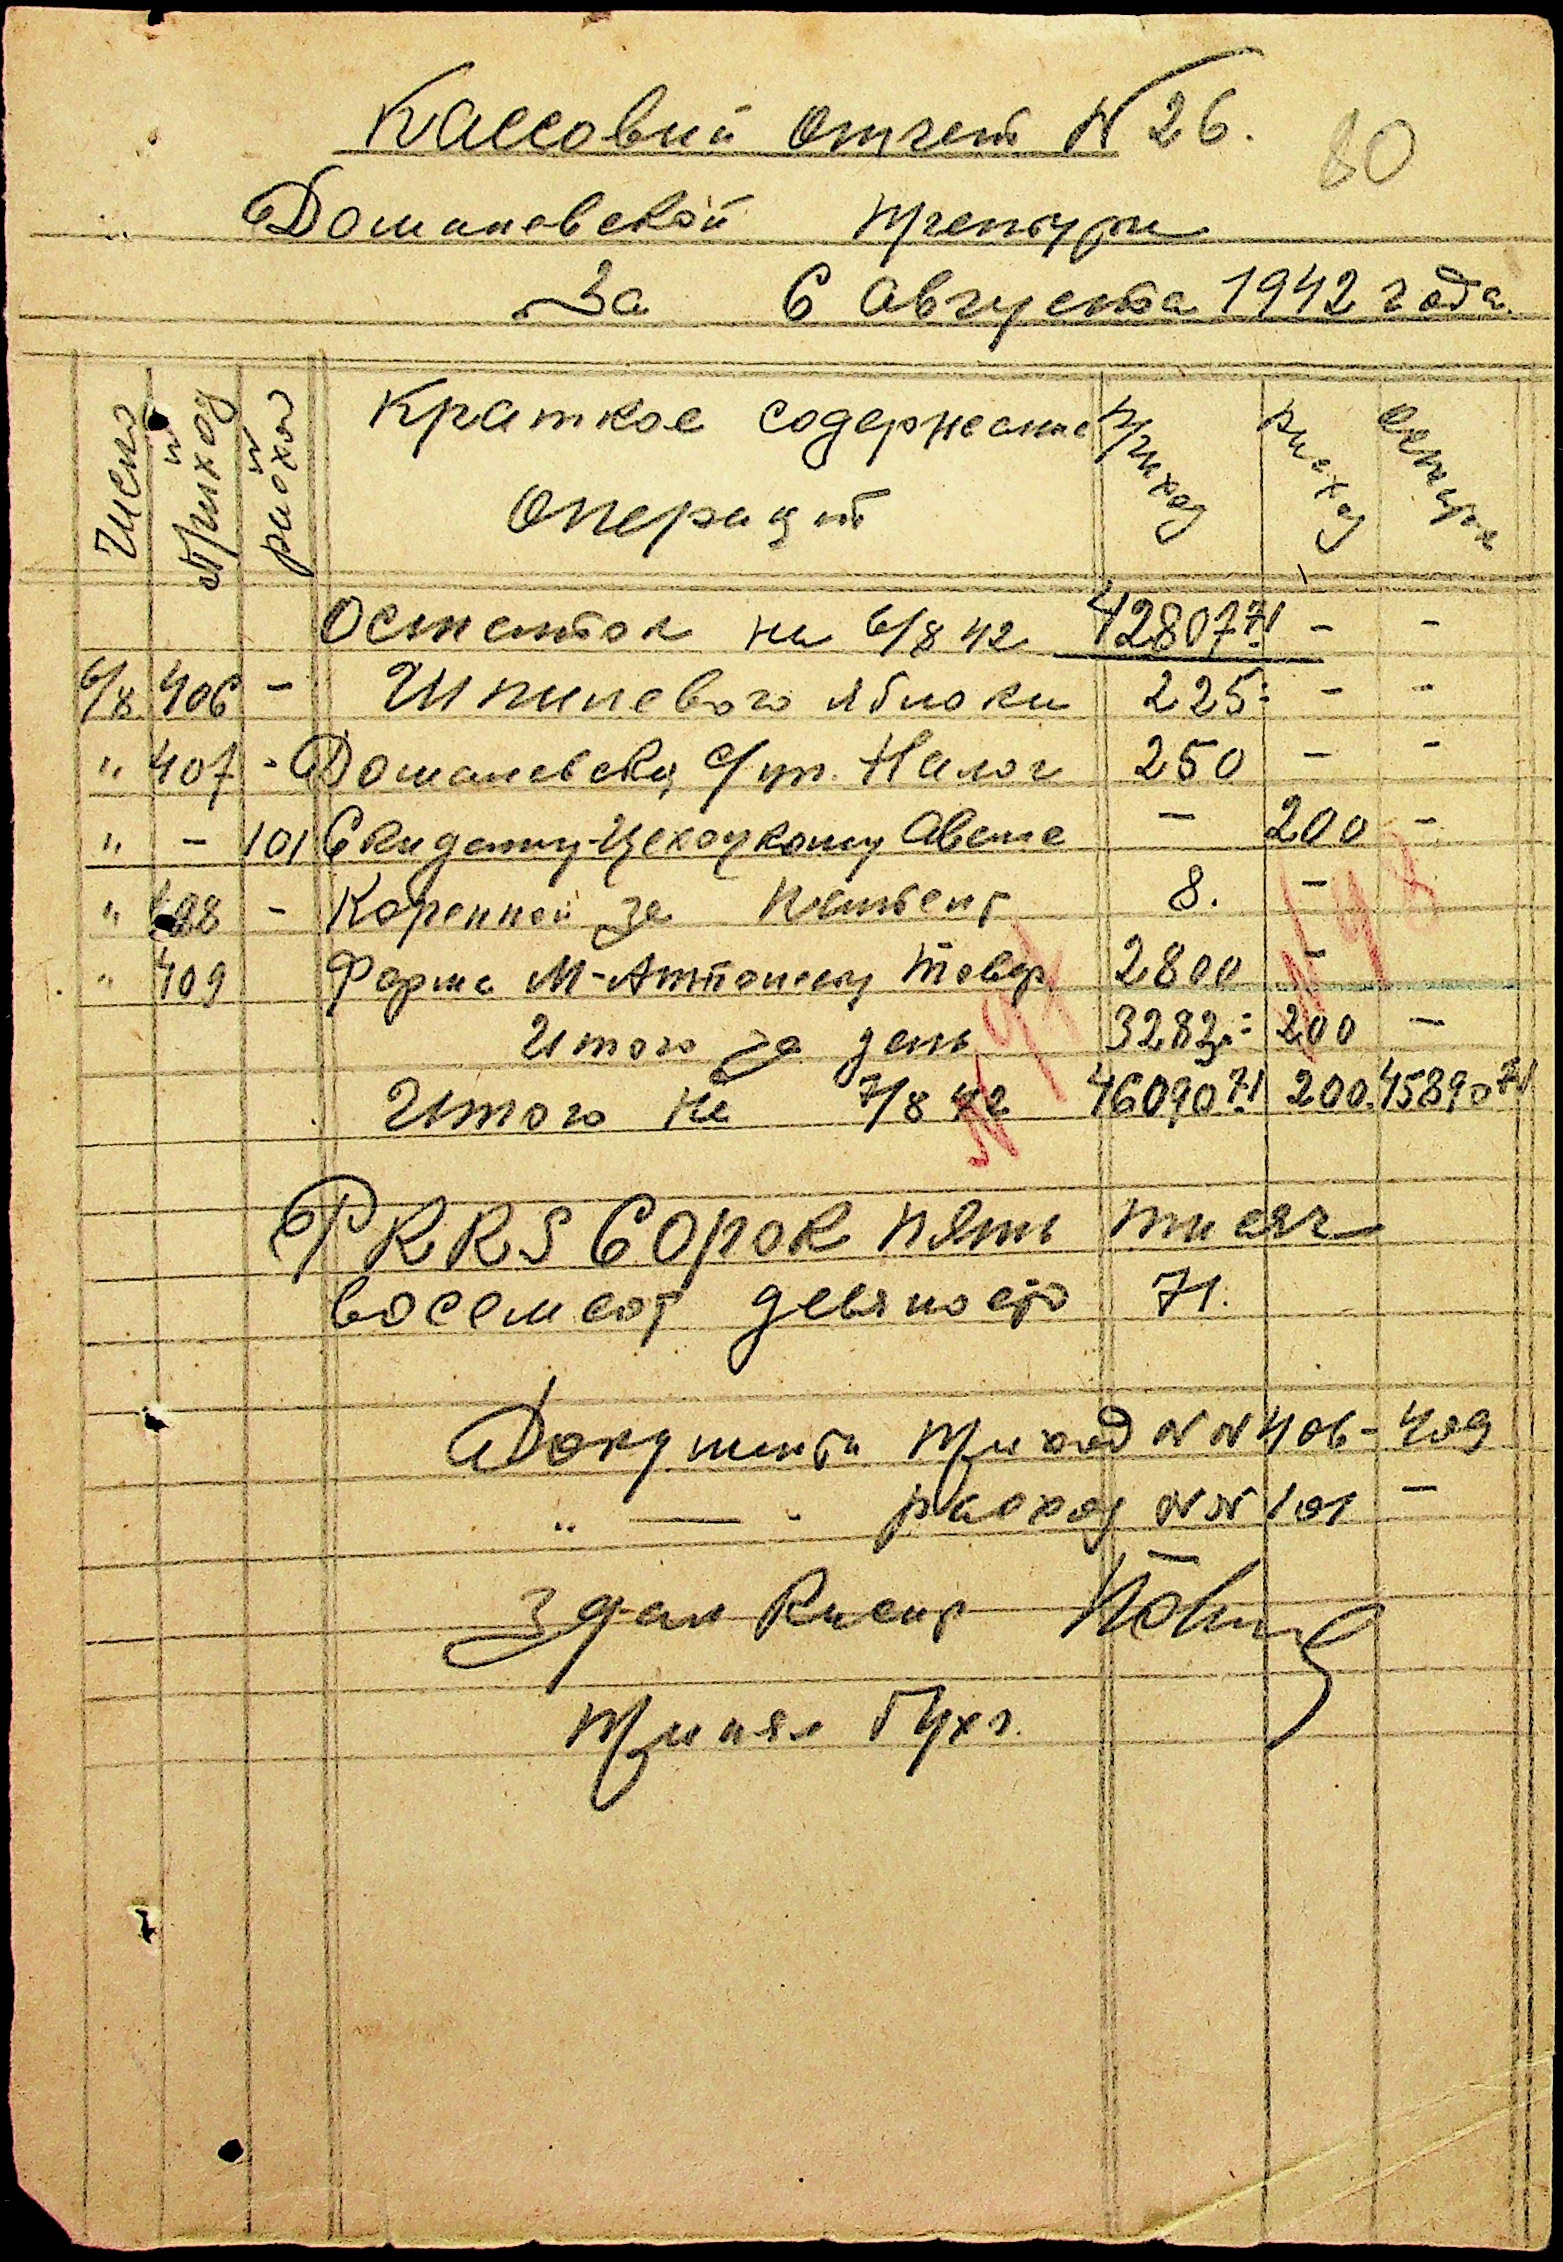 Кассовий отчет N 26.
80
Доманевской претури
За 6 Августа 1942 года.
Число N приход N расход Краткое содержание приход расход остаток
операций
Остаток на 6/8 42 42807.71 - -
6/8 406 - Шпилевого яблоки 225= - -
" 407 - Доманевску с/уп. Налог 250 - -
" - 101 Скидану-Цехоцкому Аванс - 200 -
" 408 - Коренной за патент 8. -
" 409 Ферма М-Антонеску товар 2800 -
Итого за день 3283.= 200 -
Итого на 7/8 42 46090.71 200. 45890 71
РККS Сорок пять тисяч
восемсот девяносто 71.
Документи приход N N 406 - 409
" — " расход N N 101 —
Здал Касир
Принял Бухг.